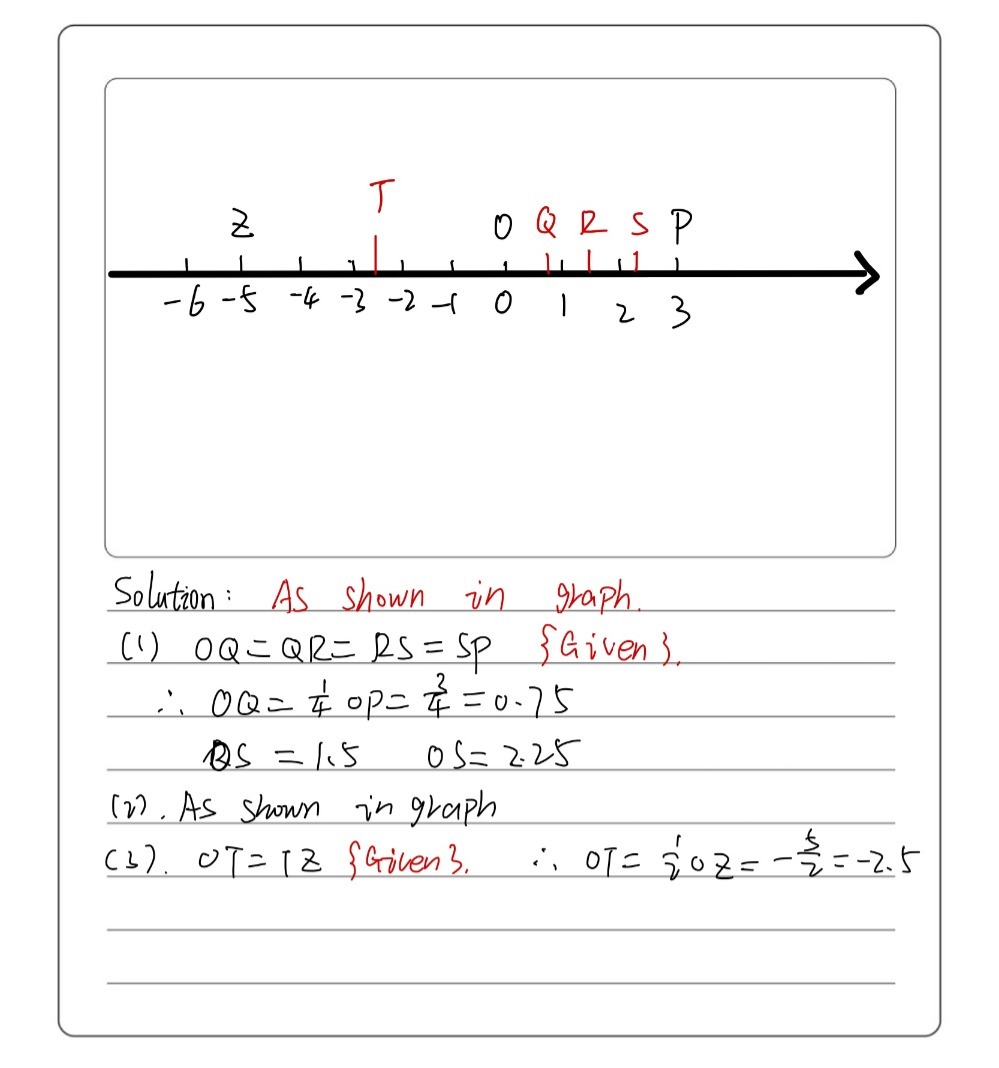 T
Z O Q R S P
-6 -5 -4 -3 -2 -1 0 1 2 3
Solution: As shown in graph.
(1) OQ = QR = RS = SP {Given}.
∴ OQ = 1/4 OP = 3/4 = 0.75
QS = 1.5 OS = 2.25
(2). As shown in graph
(3). OT = TZ {Given}. ∴ OT = 1/2 OZ = -5/2 = -2.5